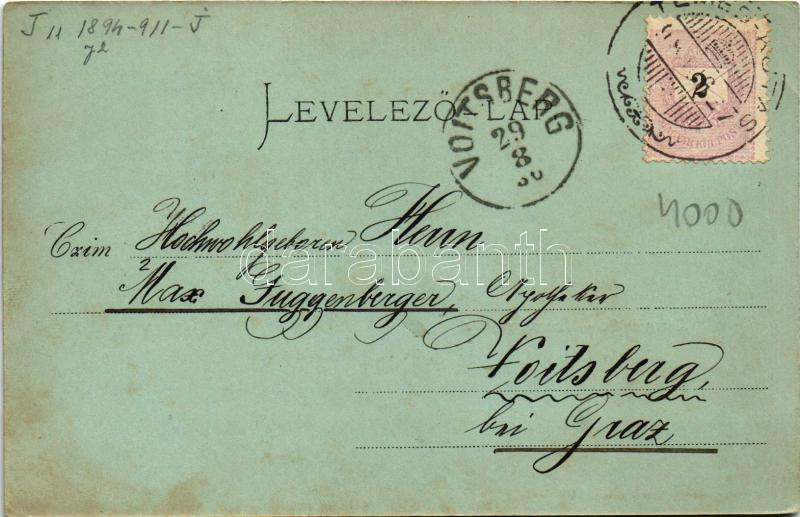 J 11 1894-911-J
y2
LEVELEZŐ-LAP
VOITSBERG
29
8
2
4000
Czim Hochwohlgeboren Herrn
darabanth
Max Guggenberger, Apotheker
Voitsberg,
bei Graz